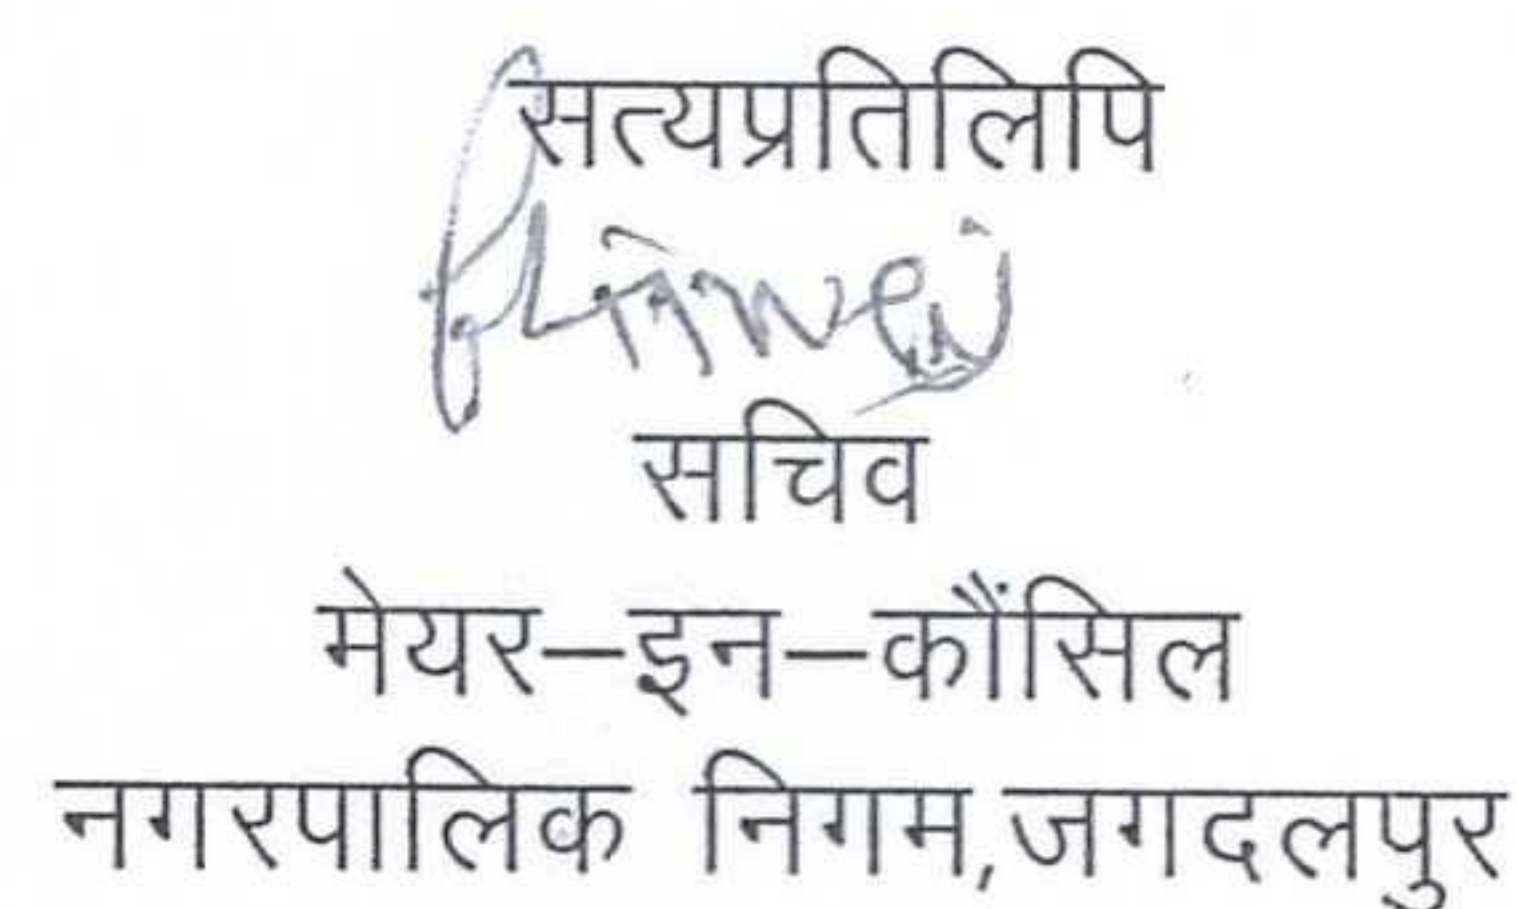 सत्यप्रतिलिपि
सचिव
मेयर–इन–कौंसिल
नगरपालिक निगम,जगदलपुर